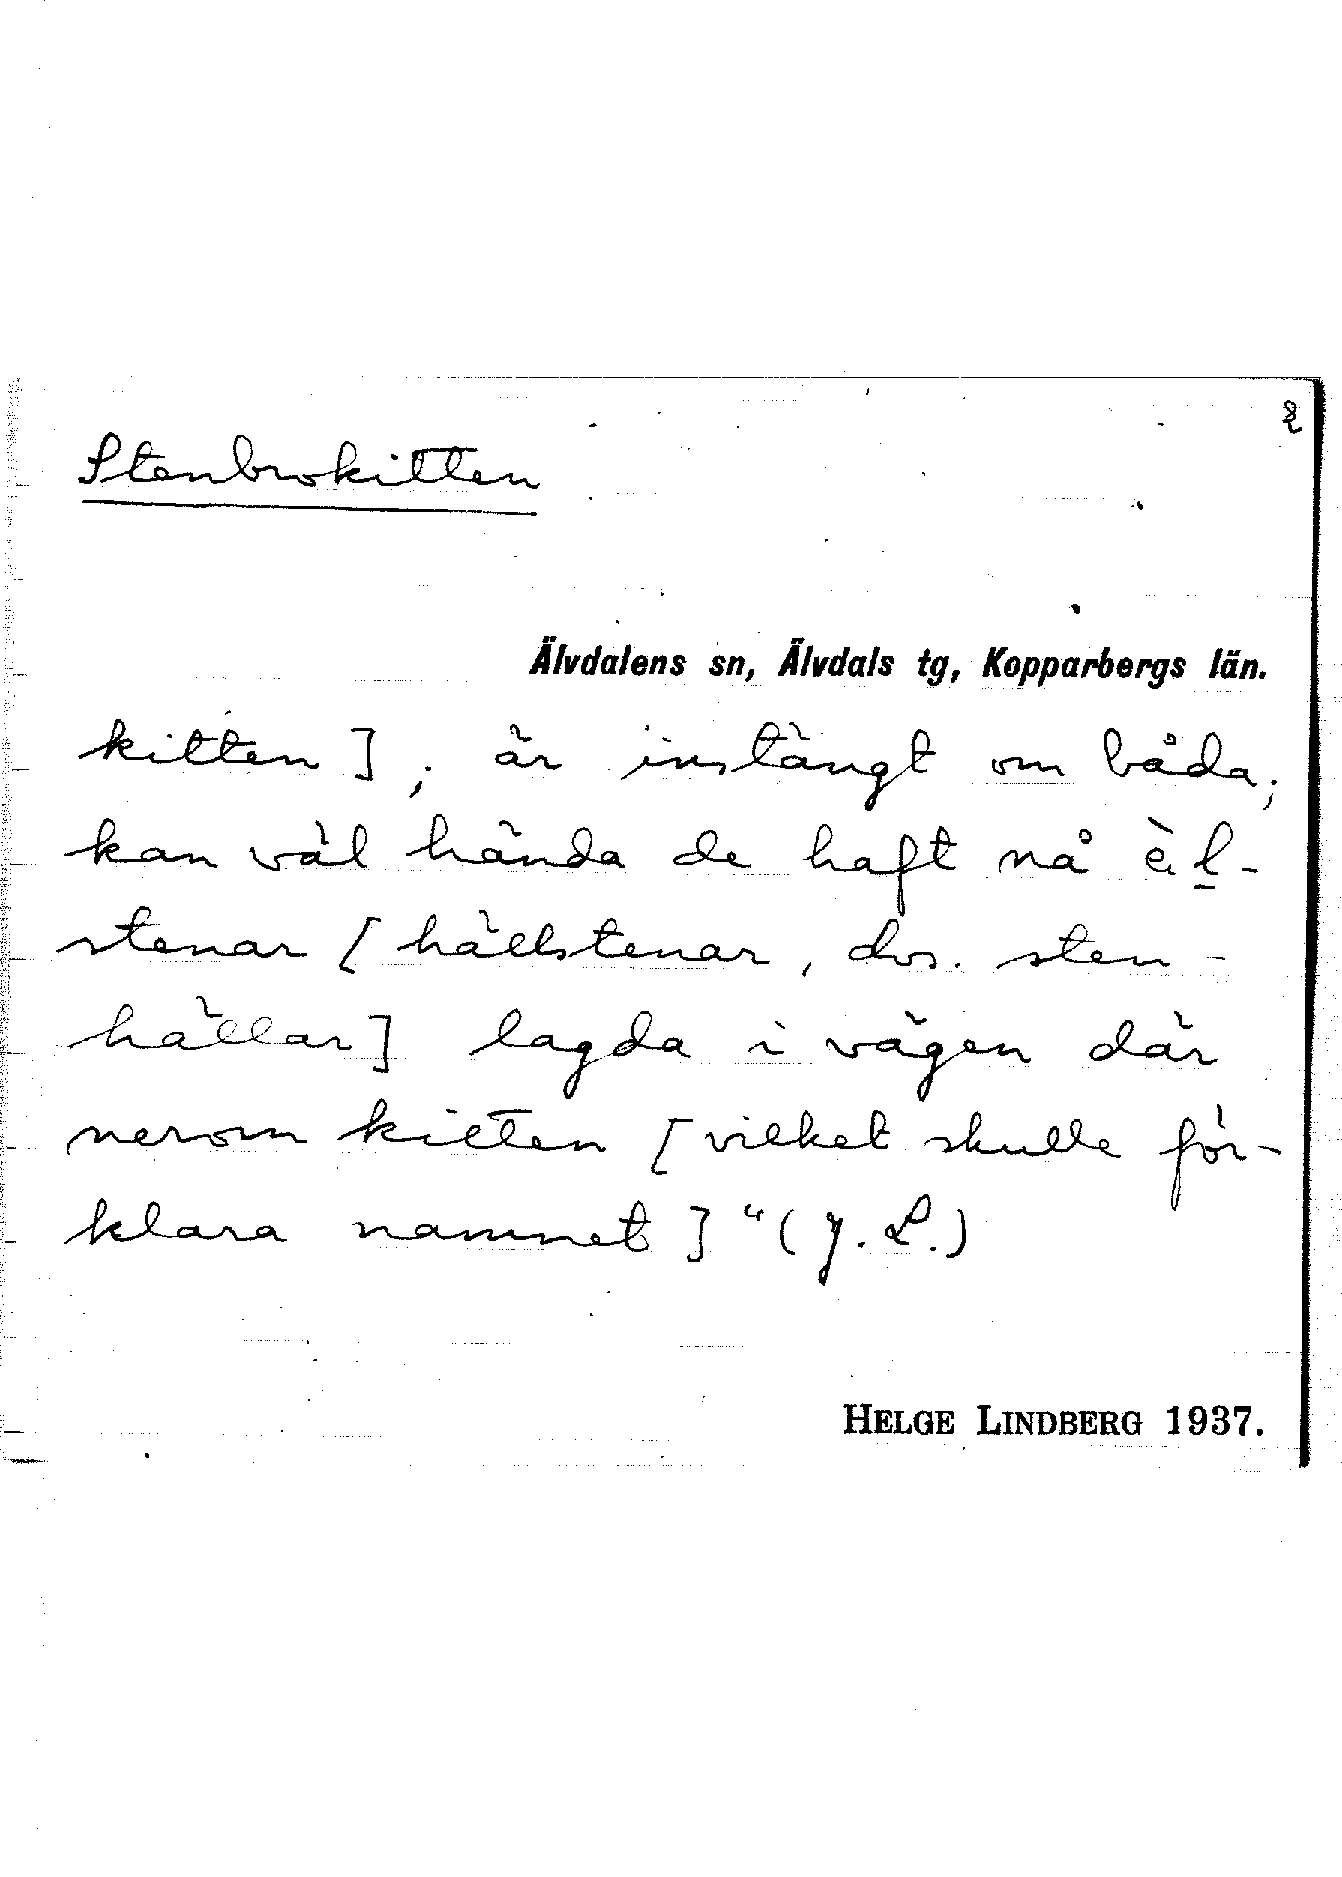 2
Stenbrokitten
Älvdalens sn, Älvdals tg, Kopparbergs län.
kitten]; är instängt om båda;
kan väl hända de haft nå ὲl-
stenar [hällstenar, dvs. sten-
hällar] lagda i vägen där
nerom kitten [vilket skulle för-
klara namnet]“ (J. L.)
HELGE LINDBERG 1937.